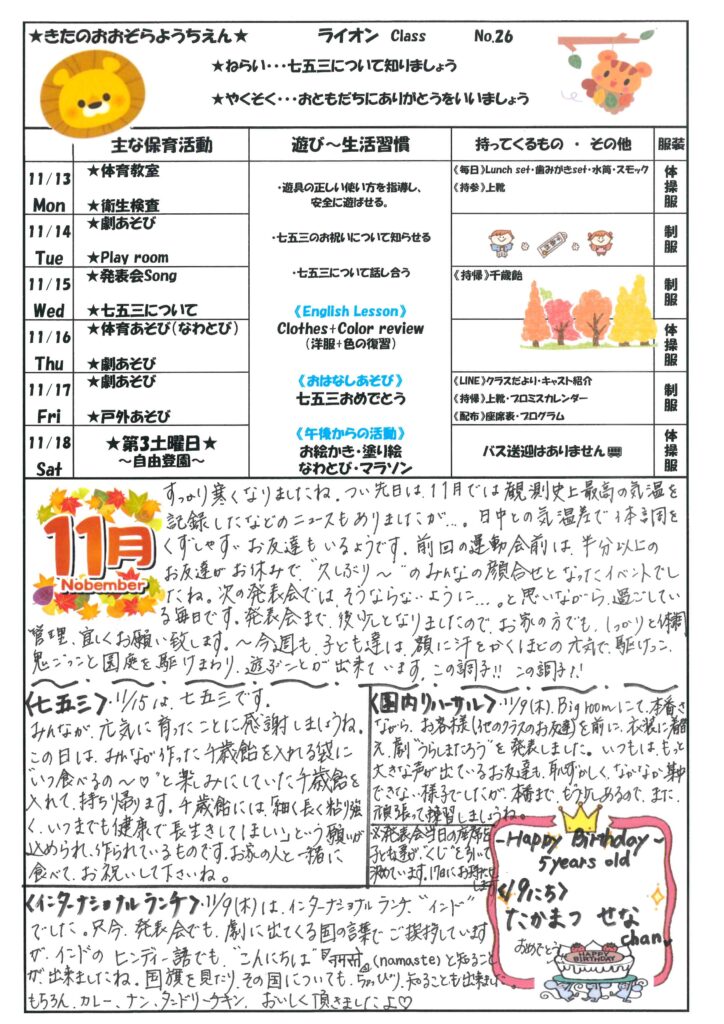 ★きたのおおぞらようちえん★ ライオン Class No.26
★ねらい・・・七五三について知りましょう
★やくそく・・・おともだちにありがとうをいいましょう
主な保育活動 遊び～生活習慣 持ってくるもの ・ その他 服装
11/13 Mon
★体育教室
★衛生検査
・遊具の正しい使い方を指導し、
安全に遊ばせる。
《毎日》Lunch set・歯みがきset・水筒・スモック
《持参》上靴
体操服
11/14 Tue
★劇あそび
★Play room
・七五三のお祝いについて知らせる
制服
11/15 Wed
★発表会Song
★七五三について
・七五三について話し合う
《English Lesson》
《持帰》千歳飴
制服
11/16 Thu
★体育あそび(なわとび)
★劇あそび
Clothes+Color review
(洋服+色の復習)
体操服
11/17 Fri
★劇あそび
★戸外あそび
《おはなしあそび》
七五三おめでとう
《LINE》クラスだより・キャスト紹介
《持帰》上靴・プロミスカレンダー
《配布》座席表・プログラム
制服
11/18 Sat
★第3土曜日★
～自由登園～
《午後からの活動》
お絵かき・塗り絵
なわとび・マラソン
バス送迎はありません
体操服
11月
Nobember
すっかり寒くなりましたね。つい先日は、11月では観測史上最高の気温を
記録したなどのニュースもありましたが…。日中との気温差で体調を
くずしやすいお友達もいるようです。前回の運動会前は、半分以上の
お友達がお休みで“久しぶり～”のみんなの顔合せとなったイベントでし
たね。次の発表会では、そうならないように…。と思いながら、過ごしてい
る毎日です。発表会まで、後少しとなりましたので、お家の方でも、しっかりと体調
管理、宜しくお願い致します。～今週も、子ども達は、顔に汗をかくほどの元気で、駆けっこ、
鬼ごっこと園庭を駆けまわり、遊ぶことが出来ています。この調子!! この調子!!
〈七五三〉・11/15は、七五三です。
みんなが、元気に育ったことに感謝しましょうね。
この日は、みんなが作った千歳飴を入れる袋に
“いつ食べるの～♡”と楽しみにしていた千歳飴を
入れて、持ち帰ります。千歳飴には「細く長く粘り強
く、いつまでも健康で長生きしてほしい」という願いが
込められ、作られているものです。お家の人と一緒に
食べて、お祝いして下さいね。
〈園内リハーサル〉・11/9(木)、Big roomにて、本番さ
ながら、お客様(他のクラスのお友達)を前に、衣装に着替
え、劇“うらしまたろう”を発表しました。いつもは、もっと
大きな声が出ているお友達も、恥ずかしく、なかなか集中
できない様子でしたが、本番まで、もう少しあるので、また、
頑張って練習しましょうね。
※発表会当日の座席は、
子ども達が、“くじ”を引いて
決めています。17日にお持たせ
します
-Happy Birthday-
5years old
〈19にち〉
たかまつ せな
chan
おめでとう
HAPPY BIRTHDAY
〈インターナショナルランチ〉・11/9(木)は、インターナショナルランチ、“インド”
でした。只今、発表会でも、劇に出てくる国の言葉でご挨拶しています
が、インドのヒンディー語でも、“こんにちは”(namaste)と知ること
が、出来ましたね。国旗を見たり、その国についても、ちょっぴり、知ることも出来ました。
もちろん、カレー、ナン、タンドリーチキン、おいしく頂きましたよ♡